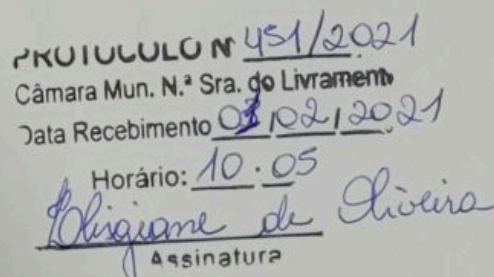 PROTOCOLO Nº 451/2021
Câmara Mun. N.ª Sra. do Livramento
Data Recebimento 03/02/2021
Horário: 10.05
Elisgiane de Oliveira
Assinatura